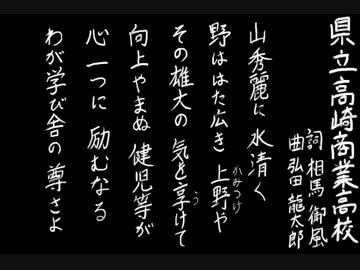 県立高崎商業高校
詞 相馬 御風
曲 弘田 龍太郎
山秀麗に 水清く
野ははた広き 上野や
かみつけ
その雄大の 気を享けて
う
向上やまぬ 健児等が
心一つに 励むなる
わが学び舎の 尊さよ